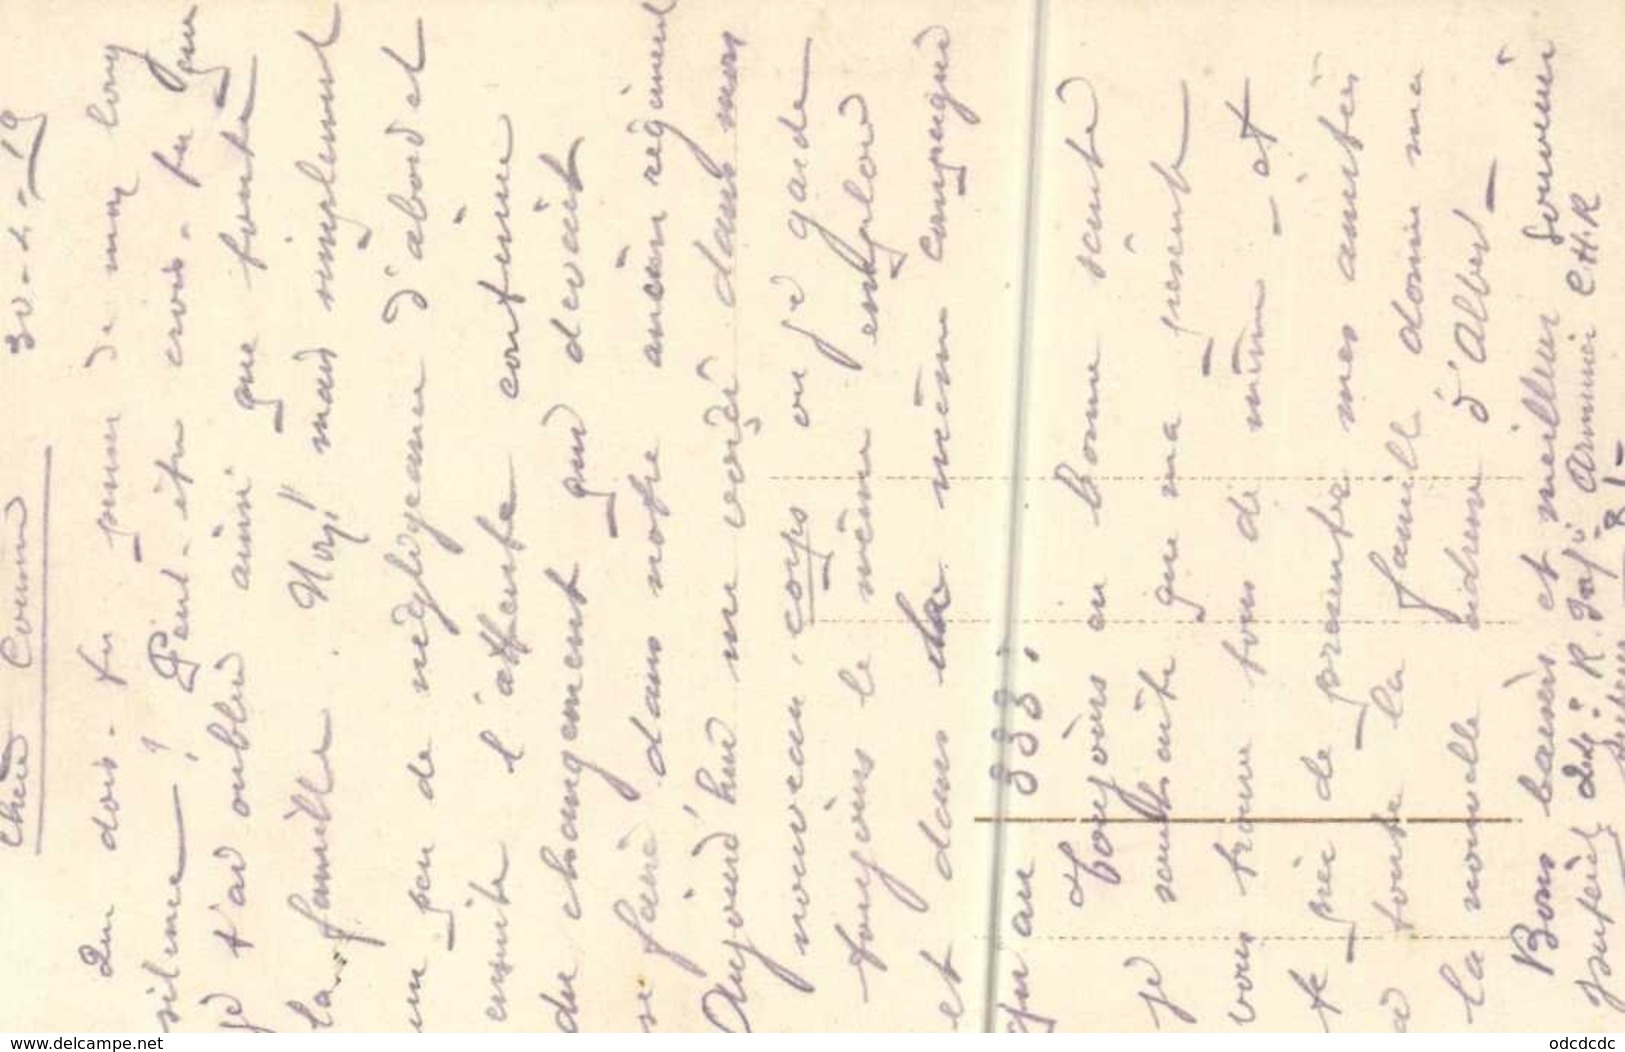 30-4-19
Cher Cousin
Que dois-tu penser de mon long
silence! Peut-être crois-tu que
je t'ai oublié ainsi que toute
la famille. Non! mais simplement
un peu de négligeance d'abord et
ensuite l'attente continue
du changement qui devait
se faire dans notre ancien régiment
Aujourd'hui me voici dans mon
nouveau corps ou je garde
toujours le même emploi
et dans la même compagnie
qu'au 333.
Toujours en bonne santé
je souhaite que ma présente
vous trouve tous de même - et
te prie de présenter mes amitiés
à toute la famille donne moi
la nouvelle adresse d'Albert -
Bons baisers et meilleur souvenir
R. Armurier C.H.R
www.delcampe.net
odcdcdc